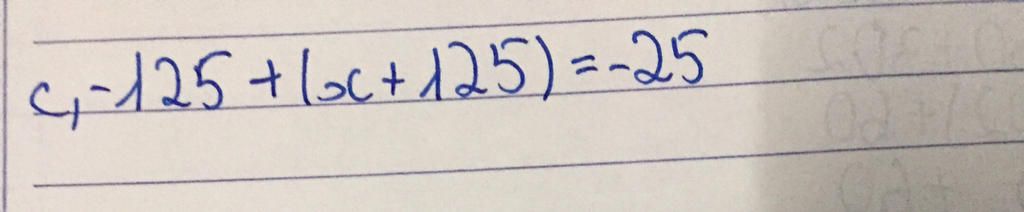 c, -125 + (x + 125) = -25